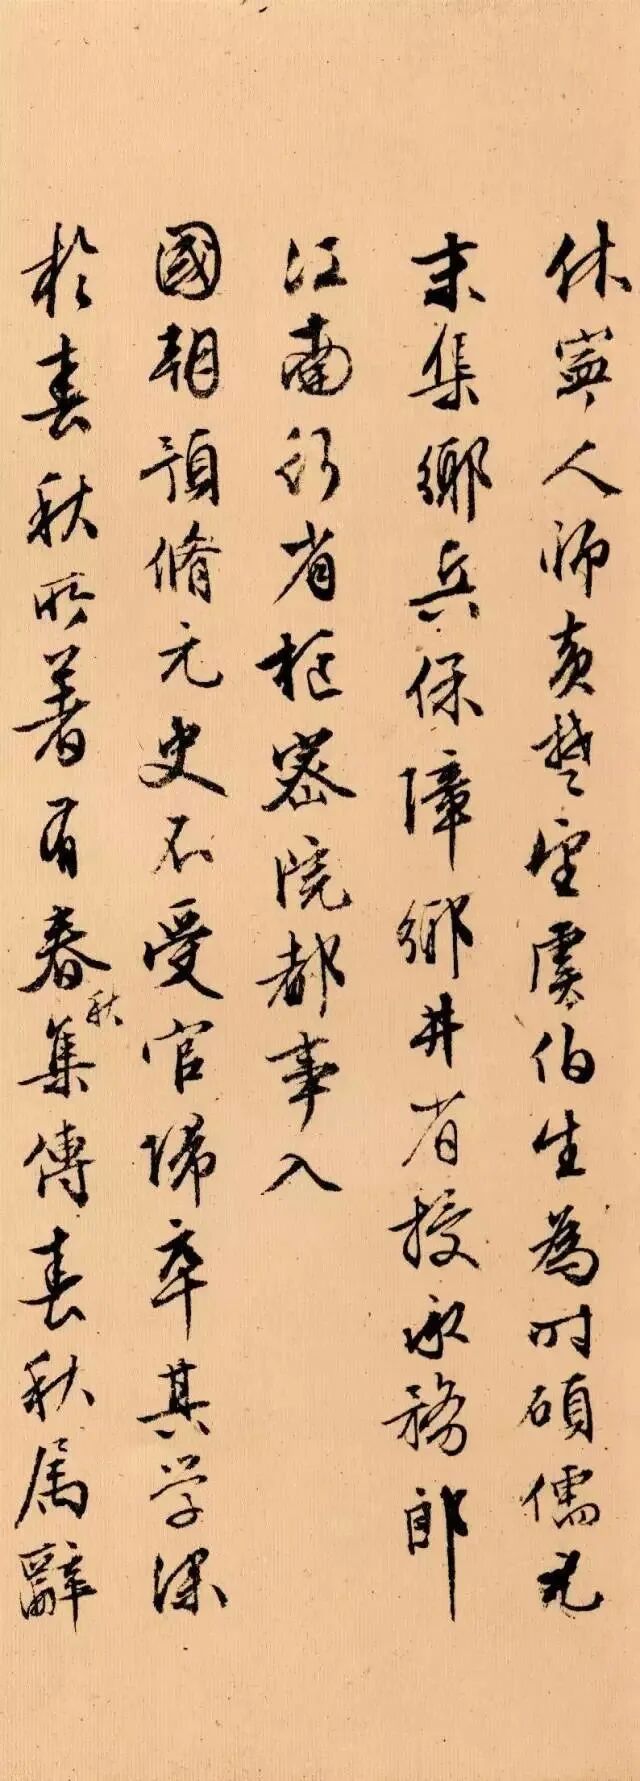 休寧人師黄楚望虞伯生為时碩儒元
末集鄉兵保障鄉井省授承務郎
江南行省樞密院都事入
國朝預脩元史不受官歸卒其学深
於春秋所著有春秋集傳春秋属辭